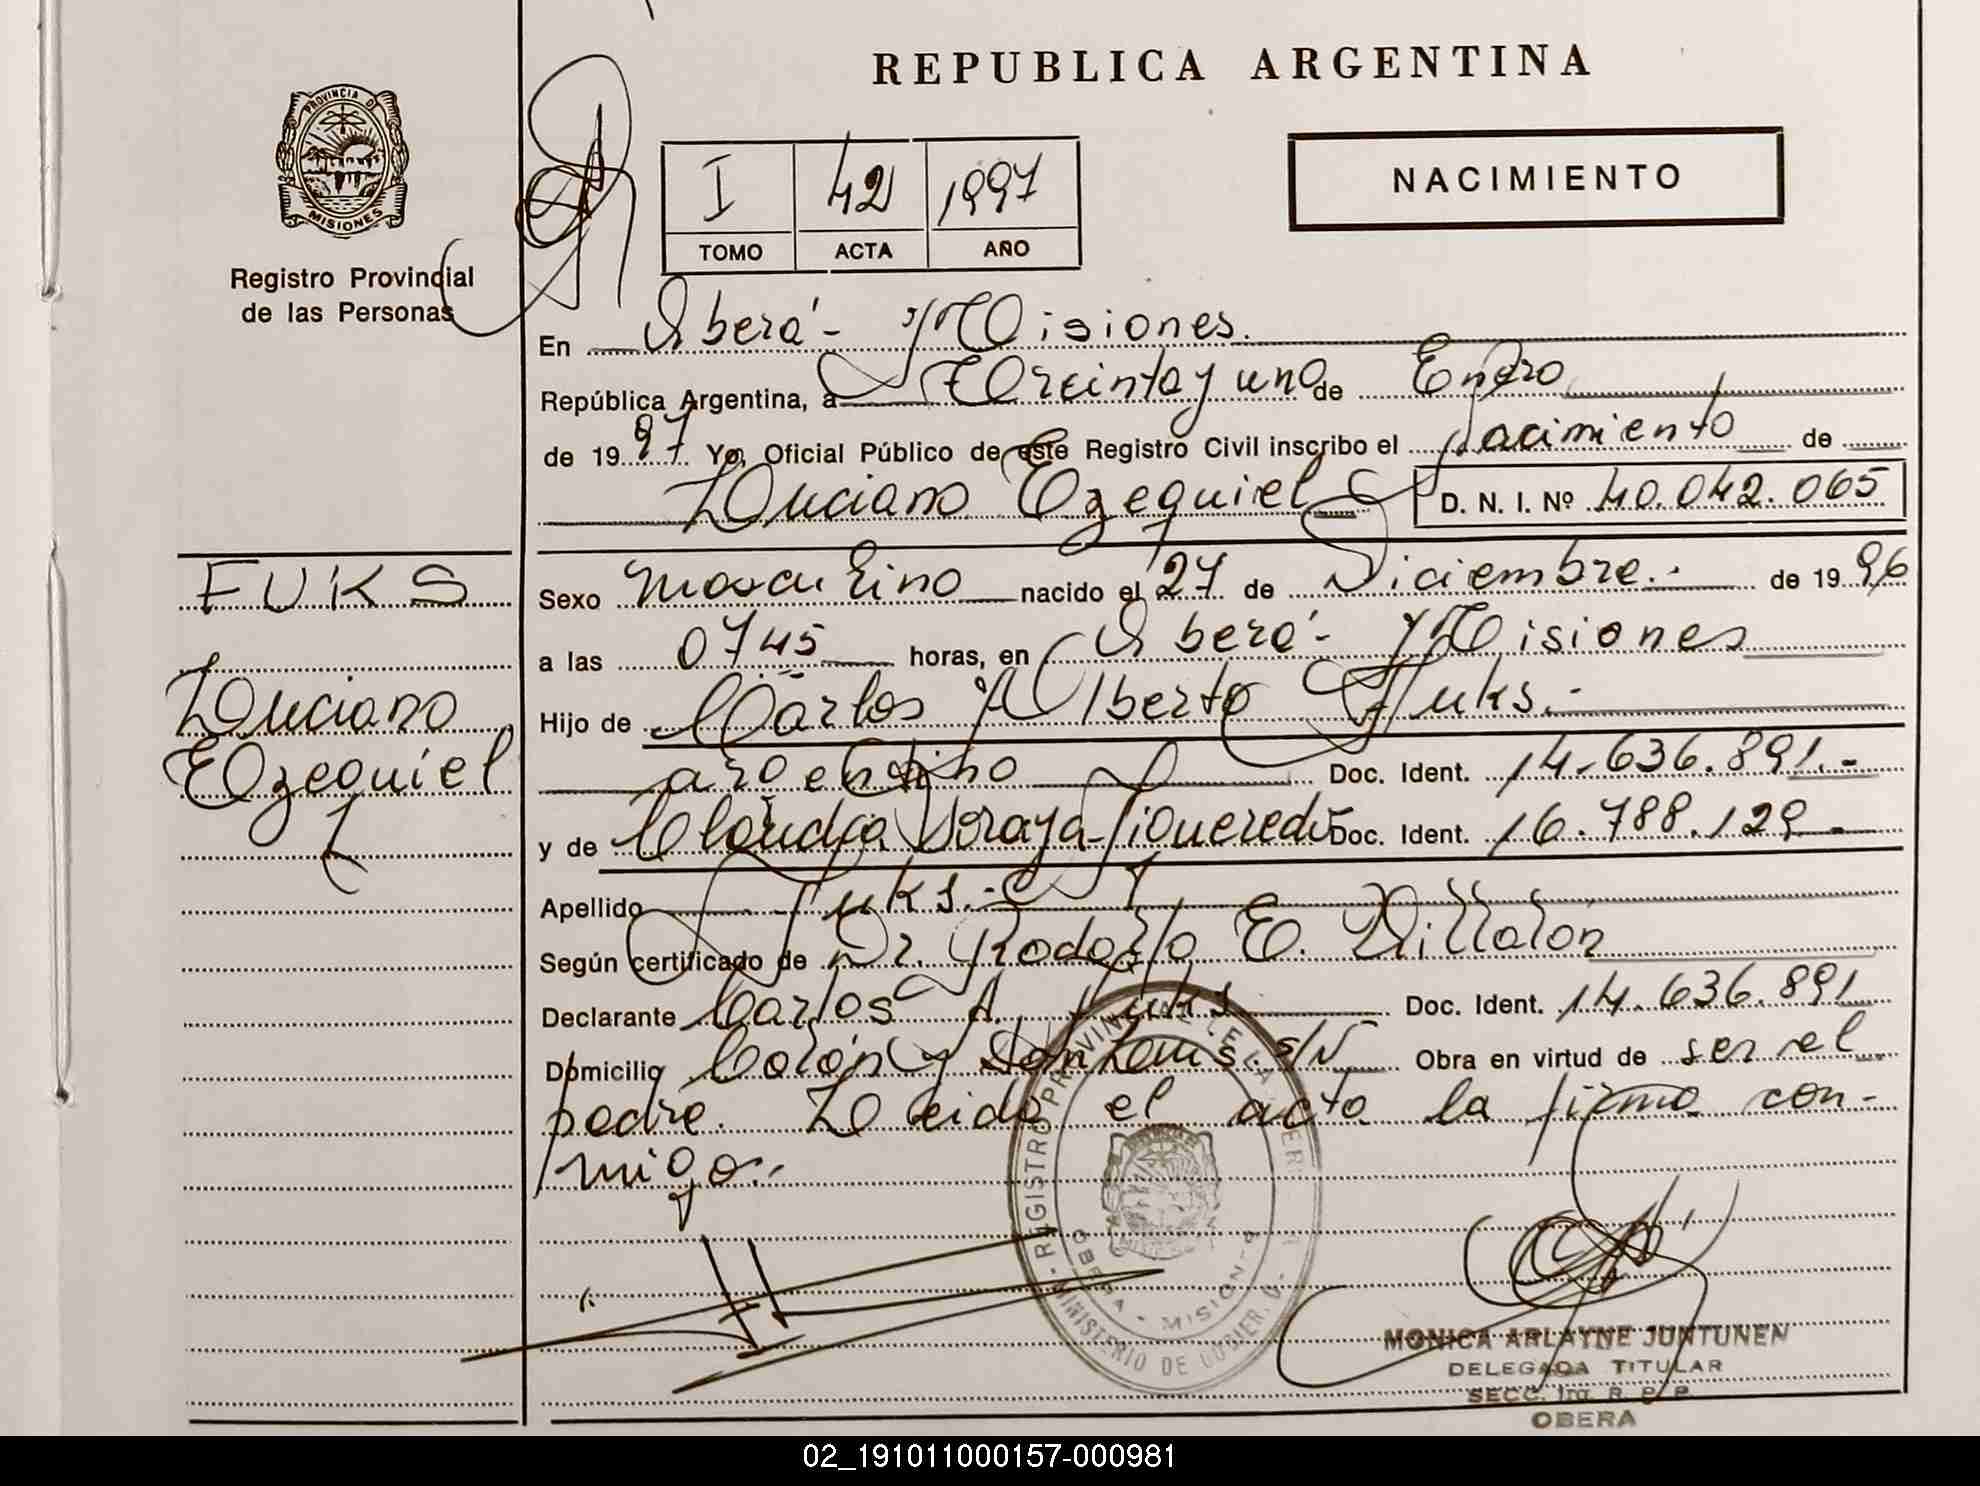 REPUBLICA ARGENTINA
PROVINCIA D
MISIONES
Registro Provincial
de las Personas
I 42 1997
TOMO ACTA AÑO
NACIMIENTO
En Oberá - Misiones.
República Argentina, a Treinta y uno de Enero
de 1997 Yo, Oficial Público de este Registro Civil inscribo el nacimiento de
Luciano Ezequiel D. N. I. Nº 40.042.065
FUKS
Luciano
Ezequiel
Sexo masculino nacido el 27 de Diciembre.- de 1996
a las 0745 horas, en Oberá - Misiones
Hijo de Carlos Alberto Fuks.-
argentino Doc. Ident. 14.636.891.-
y de Claudia Soraya Figueredo Doc. Ident. 16.788.129.-
Apellido Fuks.-
Según certificado de Dr. Rodolfo E. Villalón
Declarante Carlos A. Fuks Doc. Ident. 14.636.891
Domicilio Colón y San Luis s/N Obra en virtud de ser el
padre. Leida el acta la firma con-
migo.-
REGISTRO PROVINCIAL DE LA
OBERA - MISIONES
MINISTERIO DE GOBIER
MONICA ARLAYNE JUNTUNEN
DELEGADA TITULAR
SECC. 1ra. R. P. P.
OBERA
02_191011000157-000981